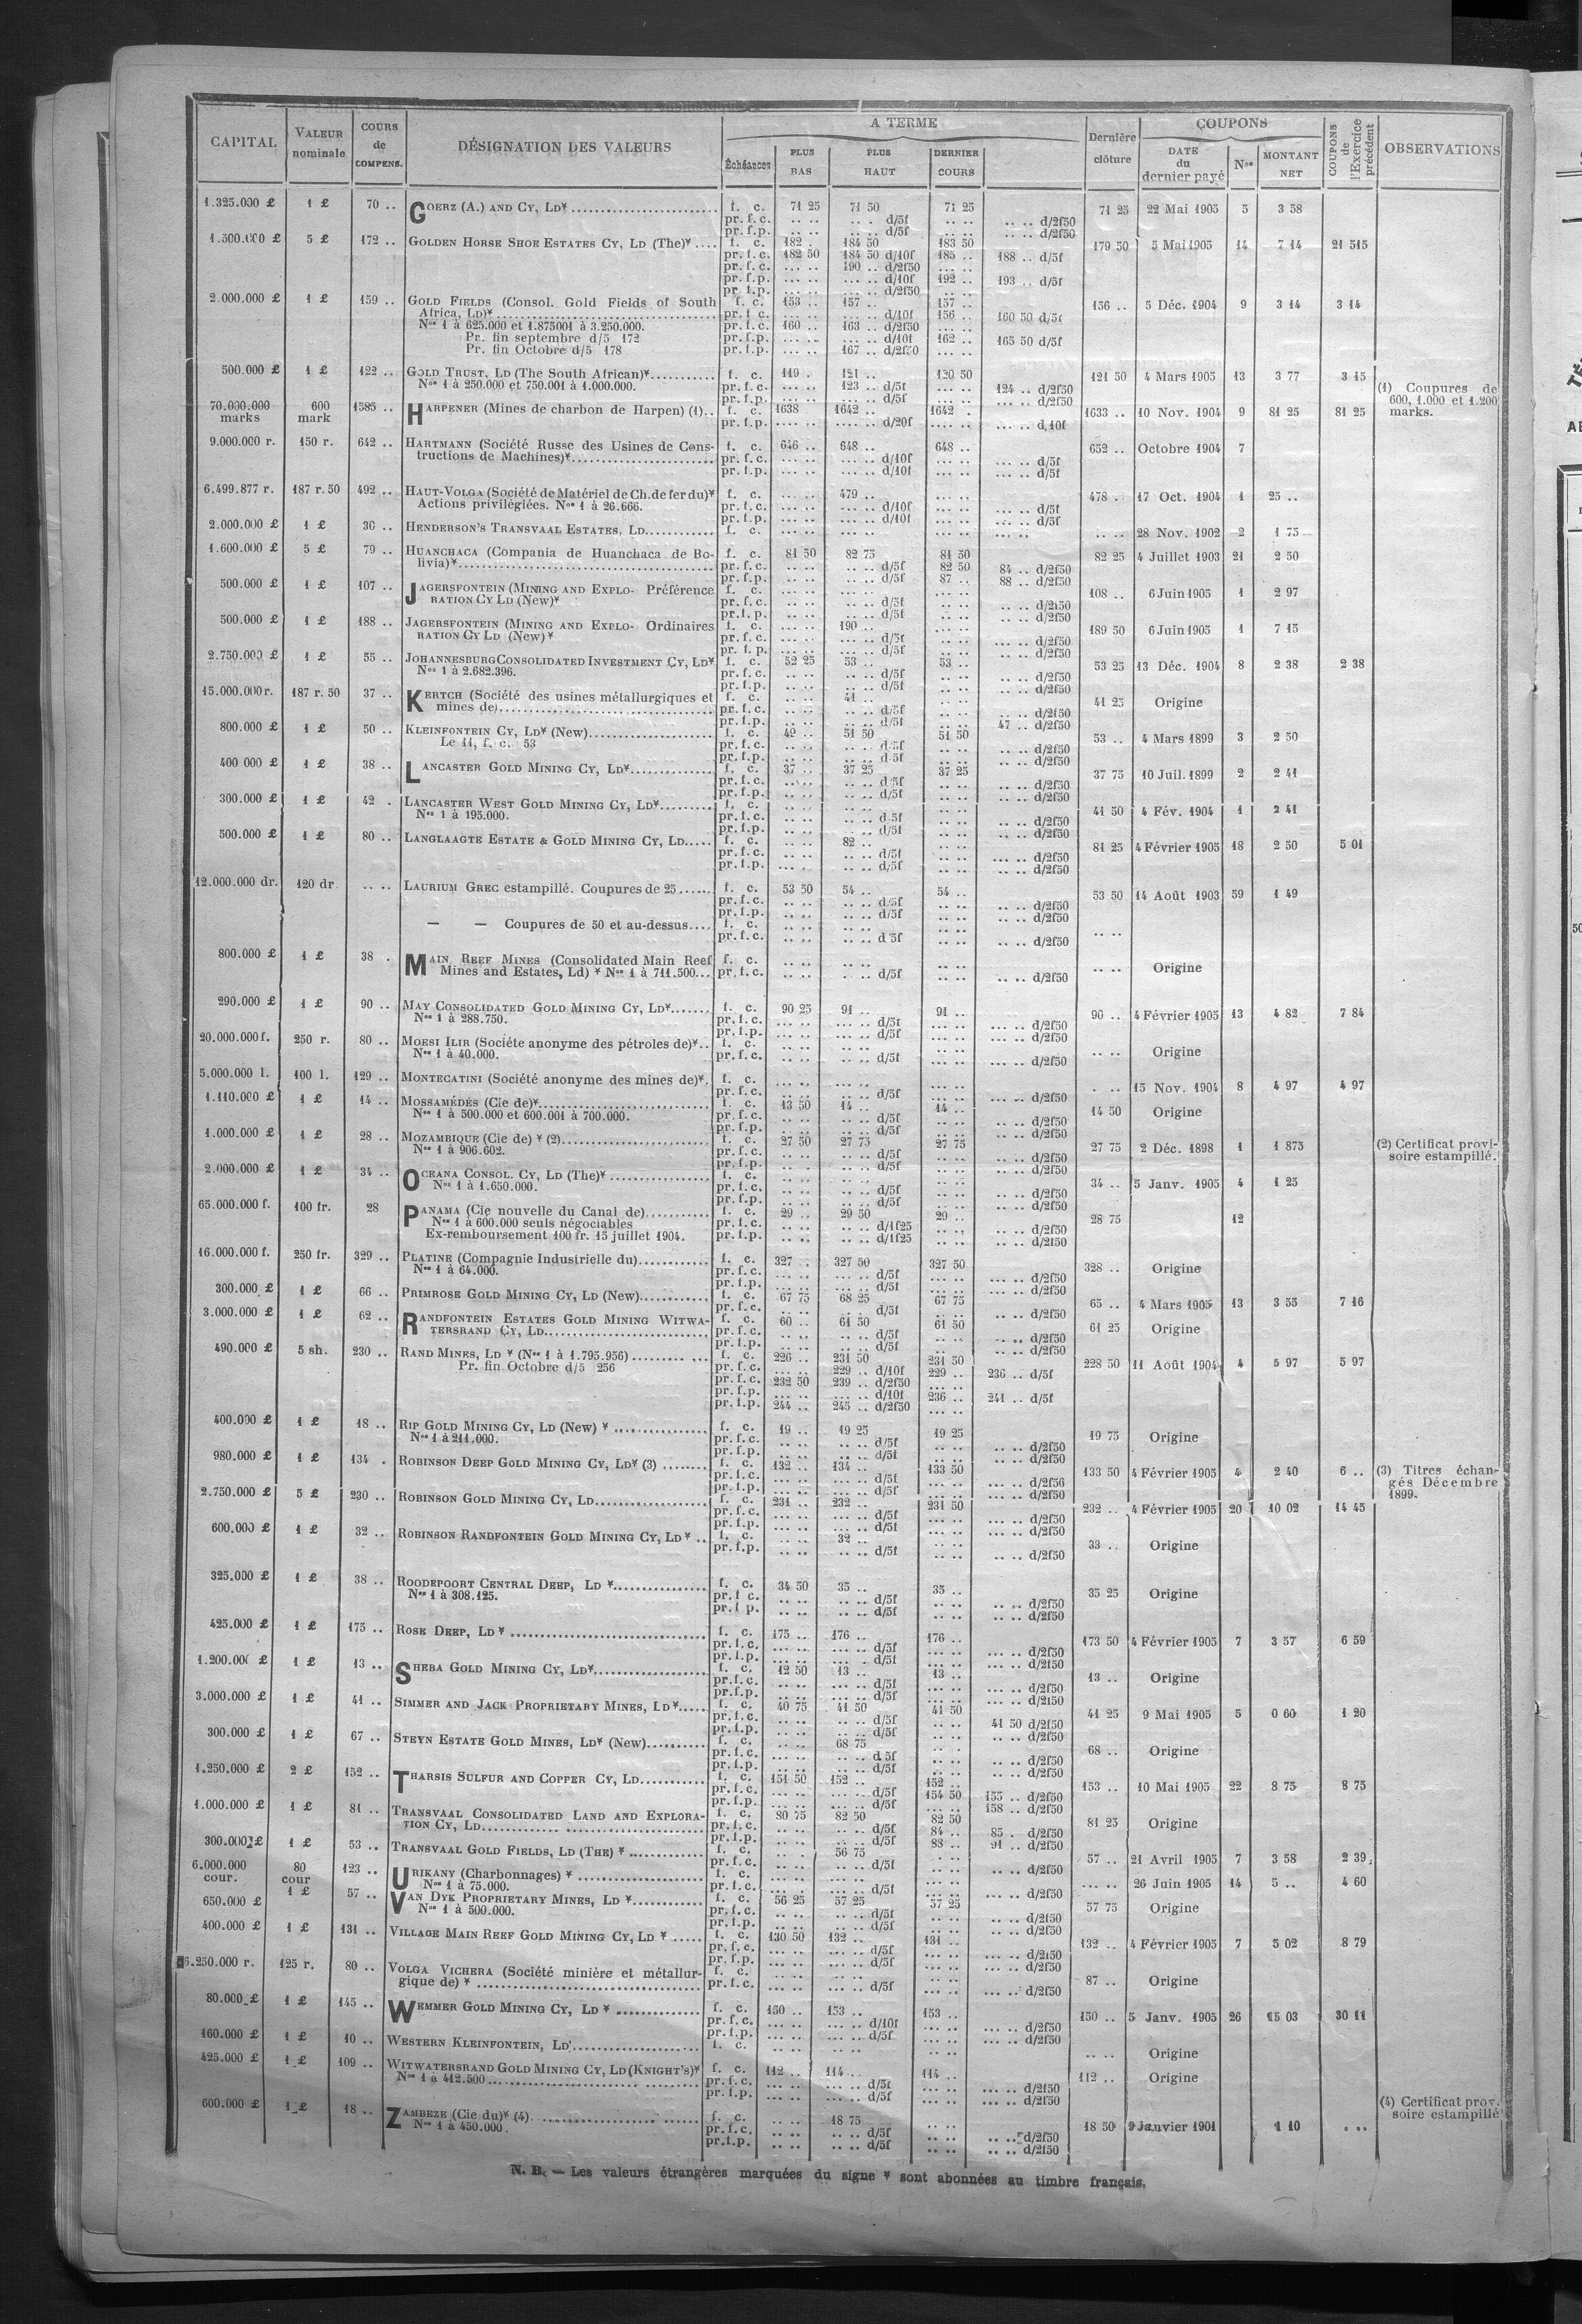 CAPITAL | VALEUR nominale | COURS de COMPENS. | DÉSIGNATION DES VALEURS | A TERME | Dernière clôture | COUPONS | COUPONS de l'Exercice précédent | OBSERVATIONS
Échéances | PLUS BAS | PLUS HAUT | DERNIER COURS | DATE du dernier payé | Nos | MONTANT NET
1.325.000 £ | 1 £ | 70 .. | GOERZ (A.) AND CY, LD* | f. c. | 71 25 | 71 50 | 71 25 | 71 25 | 22 Mai 1905 | 5 | 3 58
pr. f. c. | .. .. | .. . d/5f | .. .. | .. .. d/2f50
pr. f. p. | .. .. | .. .. d/5f | .. .. | .. .. d/2f50
1.500.000 £ | 5 £ | 172 .. | GOLDEN HORSE SHOE ESTATES CY, LD (The)* | f. c. | 182 . | 184 50 | 183 50 | 179 50 | 5 Mai 1905 | 14 | 7 14 | 21 515
pr. f. c. | 182 50 | 184 50 d/10f | 185 .. | 188 .. d/5f
pr. f. c. | ... .. | 190 .. d/2f50 | ... ..
pr. f. p. | ... .. | ... .. d/10f | 192 .. | 193 .. d/5f
pr. f. p. | ... .. | ... .. d/2f50 | ... ..
2.000.000 £ | 1 £ | 159 .. | GOLD FIELDS (Consol. Gold Fields of South | f. c. | 153 .. | 157 .. | 157 .. | 156 .. | 5 Déc. 1904 | 9 | 3 14 | 3 14
Africa, LD)* | pr. f. c. | ... .. | ... .. d/10f | 156 .. | 160 50 d/5f
Nos 1 à 625.000 et 1.875001 à 3.250.000. | pr. f. c. | 160 .. | 163 .. d/2f50 | ... ..
Pr. fin septembre d/5 172 | pr. f. p. | ... .. | ... .. d/10f | 162 .. | 165 50 d/5f
Pr. fin Octobre d/5 178 | pr. f. p. | ... .. | 167 .. d/2f50 | ... ..
500.000 £ | 1 £ | 122 .. | GOLD TRUST, LD (The South African)* | f. c. | 119 . | 121 .. | 120 50 | 121 50 | 4 Mars 1905 | 13 | 3 77 | 3 15
Nos 1 à 250.000 et 750.001 à 1.000.000. | pr. f. c. | ... .. | 123 .. d/5f | ... .. | 124 .. d/2f50 | (1) Coupures de 600, 1.000 et 1.200 marks.
pr. f. p. | ... .. | ... .. d/5f | ... .. | ... .. d/2f50
70.000.000 marks | 600 mark | 1585 .. | HARPENER (Mines de charbon de Harpen) (1) | f. c. | 1638 | 1642 .. | 1642 . | 1633 .. | 10 Nov. 1904 | 9 | 81 25 | 81 25
pr. f. p. | .... .. | .... .. d/20f | .... .. | ... .. d.10f
9.000.000 r. | 150 r. | 642 .. | HARTMANN (Société Russe des Usines de Cons- | f. c. | 646 .. | 648 .. | 648 .. | 652 .. | Octobre 1904 | 7
tructions de Machines)* | pr. f. c. | ... .. | ... .. d/10f | ... .. | ... .. d/5f
pr. f. p. | ... .. | ... .. d/10f | ... .. | ... .. d/5f
6.499.877 r. | 187 r. 50 | 492 .. | HAUT-VOLGA (Société de Matériel de Ch. de fer du)* | f. c. | ... .. | 479 .. | ... .. | 478 . | 17 Oct. 1904 | 1 | 25 ..
Actions privilégiées. Nos 1 à 26.666. | pr. f. c. | ... .. | ... .. d/10f | ... .. | ... .. d/5f
pr. f. p. | ... .. | ... .. d/10f | ... .. | ... .. d/5f
2.000.000 £ | 1 £ | 30 .. | HENDERSON'S TRANSVAAL ESTATES, LD | f. c. | ... .. | ... .. | ... .. | .. .. | 28 Nov. 1902 | 2 | 1 75
1.600.000 £ | 5 £ | 79 .. | HUANCHACA (Compania de Huanchaca de Bo- | f. c. | 81 50 | 82 75 | 81 50 | 82 25 | 4 Juillet 1903 | 21 | 2 50
livia)* | pr. f. c. | .. .. | .. .. d/5f | 82 50 | 84 .. d/2f50
pr. f. p. | .. .. | .. .. d/5f | 87 .. | 88 .. d/2f50
500.000 £ | 1 £ | 107 .. | JAGERSFONTEIN (MINING AND EXPLO- Préférence | f. c. | ... .. | ... .. | ... .. | 108 .. | 6 Juin 1905 | 1 | 2 97
RATION CY LD (New)* | pr. f. c. | .. .. | .. .. d/5f | .. .. | .. .. d/2f50
pr. f. p. | .. .. | .. .. d/5f | .. .. | .. .. d/2f50
500.000 £ | 1 £ | 188 .. | JAGERSFONTEIN (MINING AND EXPLO- Ordinaires | f. c. | ... .. | 190 .. | ... .. | 189 50 | 6 Juin 1905 | 1 | 7 15
RATION CY LD (New)* | pr. f. c. | ... .. | ... .. d/5f | ... .. | ... .. d/2f50
pr. f. p. | ... .. | ... .. d/5f | ... .. | ... .. d/2f50
2.750.000 £ | 1 £ | 55 .. | JOHANNESBURG CONSOLIDATED INVESTMENT CY, LD* | f. c. | 52 25 | 53 .. | 53 .. | 53 25 | 13 Déc. 1904 | 8 | 2 38 | 2 38
Nos 1 à 2.682.396. | pr. f. c. | .. .. | .. .. d/5f | .. .. | .. .. d/2f50
pr. f. p. | .. .. | .. .. d/5f | .. .. | .. .. d/2f50
15.000.000 r. | 187 r. 50 | 37 .. | KERTCH (Société des usines métallurgiques et | f. c. | .. .. | 41 .. | .. .. | 41 25 | Origine
mines de) | pr. f. c. | .. .. | .. .. d/5f | .. .. | .. .. d/2f50
pr. f. p. | .. .. | .. .. d/5f | .. .. | 47 .. d/2f50
800.000 £ | 1 £ | 50 .. | KLEINFONTEIN CY, LD* (New) | f. c. | 49 .. | 51 50 | 51 50 | 53 .. | 4 Mars 1899 | 3 | 2 50
Le 11, f. c. 53 | pr. f. c. | .. .. | .. .. d/5f | .. .. | .. .. d/2f50
pr. f. p. | .. .. | .. .. d/5f | .. .. | .. .. d/2f50
400 000 £ | 1 £ | 38 .. | LANCASTER GOLD MINING CY, LD* | f. c. | 37 .. | 37 25 | 37 25 | 37 75 | 10 Juil. 1899 | 2 | 2 41
pr. f. c. | .. .. | .. .. d/5f | .. .. | .. .. d/2f50
pr. f. p. | .. .. | .. .. d/5f | .. .. | .. .. d/2f50
300.000 £ | 1 £ | 42 . | LANCASTER WEST GOLD MINING CY, LD* | f. c. | .. .. | .. .. | .. .. | 41 50 | 4 Fév. 1904 | 1 | 2 41
Nos 1 à 195.000. | pr. f. c. | .. .. | .. .. d.5f | .. .. | .. .. d/2f50
pr. f. p. | .. .. | .. .. d/5f | .. .. | .. .. d/2f50
500.000 £ | 1 £ | 80 .. | LANGLAAGTE ESTATE & GOLD MINING CY, LD | f. c. | .. .. | 82 .. | .. .. | 81 25 | 4 Février 1905 | 18 | 2 50 | 5 01
pr. f. c. | .. .. | .. .. d/5f | .. .. | ... .. d/2f50
pr. f. p. | ... .. | .. .. d/5f | .. .. | ... .. d/2f50
12.000.000 dr. | 120 dr | .. .. | LAURIUM GREC estampillé. Coupures de 25 | f. c. | 53 50 | 54 .. | 54 .. | 53 50 | 14 Août 1903 | 59 | 1 49
pr. f. c. | .. .. | .. .. d/5f | .. .. | .. .. d/2f50
pr. f. p. | .. .. | .. .. d/5f | .. .. | .. .. d/2f50
— — Coupures de 50 et au-dessus | f. c. | .. .. | .. .. | .. .. | .. ..
pr. f. c. | .. .. | .. .. d 5f | .. .. | .. .. d/2f50
800.000 £ | 1 £ | 38 . | MAIN REEF MINES (Consolidated Main Reef | f. c. | .. .. | .. .. | .. .. | .. .. | Origine
Mines and Estates, Ld) * Nos 1 à 711.500 | pr. f. c. | .. .. | .. .. d/5f | .. .. | .. .. d/2f50
290.000 £ | 1 £ | 90 .. | MAY CONSOLIDATED GOLD MINING CY, LD* | f. c. | 90 25 | 91 .. | 91 .. | 90 .. | 4 Février 1905 | 13 | 4 82 | 7 84
Nos 1 à 288.750. | pr. f. c. | ... .. | ... .. d/5f | ... .. | ... .. d/2f50
pr. f. p. | ... .. | ... .. d/5f | ... .. | ... .. d/2f50
20.000.000 f. | 250 r. | 80 .. | MOESI ILIR (Sociéte anonyme des pétroles de)* | f. c. | .. .. | .. .. | .. .. | .. .. | Origine
Nos 1 à 40.000. | pr. f. c. | ... .. | ... .. d/5f | ... .. | ... .. d/2f50
5.000.000 l. | 100 l. | 129 .. | MONTECATINI (Société anonyme des mines de)* | f. c. | ... .. | ... .. | ... .. | . .. | 15 Nov. 1904 | 8 | 4 97 | 4 97
pr. f. c. | ... .. | ... .. d/5f | ... .. | ... .. d/2f50
1.110.000 £ | 1 £ | 14 .. | MOSSAMÉDÈS (Cie de)* | f. c. | 13 50 | 14 .. | 14 .. | 14 50 | Origine
Nos 1 à 500.000 et 600.001 à 700.000. | pr. f. c. | .. .. | .. .. d/5f | .. .. | .. .. d/2f50
pr. f. p. | .. .. | .. .. d/5f | .. .. | .. .. d/2f50
1.000.000 £ | 1 £ | 28 .. | MOZAMBIQUE (Cie de) * (2) | f. c. | 27 50 | 27 75 | 27 75 | 27 75 | 2 Déc. 1898 | 1 | 1 875 | (2) Certificat provisoire estampillé.
Nos 1 à 906.602. | pr. f. c. | .. .. | .. .. d/5f | .. .. | .. .. d/2f50
pr. f. p. | .. .. | .. .. d/5f | .. .. | .. .. d/2f50
2.000.000 £ | 1 £ | 34 .. | OCEANA CONSOL. CY, LD (The)* | f. c. | .. .. | .. .. | .. .. | 34 .. | 5 Janv. 1905 | 4 | 1 25
Nos 1 à 1.650.000. | pr. f. c. | .. .. | .. .. d/5f | .. .. | .. .. d/2f50
pr. f. p. | .. .. | .. .. d/5f | .. .. | .. .. d/2f50
65.000.000 f. | 100 fr. | 28 | PANAMA (Cie nouvelle du Canal de) | f. c. | 29 .. | 29 50 | 29 .. | 28 75 | 12
Nos 1 à 600.000 seuls négociables | pr. f. c. | .. .. | .. .. d/1f25 | .. .. | .. .. d/2f50
Ex-remboursement 100 fr. 15 juillet 1904. | pr. f. p. | .. .. | .. .. d/1f25 | .. .. | .. .. d/2f50
16.000.000 f. | 250 fr. | 329 .. | PLATINE (Compagnie Industrielle du) | f. c. | 327 .. | 327 50 | 327 50 | 328 .. | Origine
Nos 1 à 64.000. | pr. f. c. | ... .. | ... .. d/5f | ... .. | ... .. d/2f50
pr. f. p. | ... .. | ... .. d/5f | ... .. | ... .. d/2f50
300.000 £ | 1 £ | 66 .. | PRIMROSE GOLD MINING CY, LD (New) | f. c. | 67 75 | 68 25 | 67 75 | 65 .. | 4 Mars 1905 | 13 | 3 55 | 7 16
pr. f. c. | .. .. | .. .. d/5f | .. .. | .. .. d/2f50
3.000.000 £ | 1 £ | 62 .. | RANDFONTEIN ESTATES GOLD MINING WITWA- | f. c. | 60 .. | 61 50 | 61 50 | 61 25 | Origine
TERSRAND CY, LD | pr. f. c. | .. .. | .. .. d/5f | .. .. | .. .. d/2f50
pr. f. p. | .. .. | .. .. d/5f | .. .. | .. .. d/2f50
490.000 £ | 5 sh. | 230 .. | RAND MINES, LD * (Nos 1 à 1.795.956) | f. c. | 226 .. | 231 50 | 231 50 | 228 50 | 11 Août 1904 | 4 | 5 97 | 5 97
Pr. fin Octobre d/5 256 | pr. f. c. | ... .. | 229 .. d/10f | 229 .. | 236 .. d/5f
pr. f. c. | 232 50 | 239 .. d/2f50 | ... ..
pr. f. p. | ... .. | ... .. d/10f | 236 .. | 241 .. d/5f
pr. f. p. | 244 .. | 245 .. d/2f50 | ... ..
400.000 £ | 1 £ | 18 .. | RIP GOLD MINING CY, LD (New) * | f. c. | 19 .. | 19 25 | 19 25 | 19 75 | Origine
Nos 1 à 211.000. | pr. f. c. | .. .. | .. .. d/5f | .. .. | .. .. d/2f50
pr. f. p. | .. .. | .. .. d/5f | .. .. | .. .. d/2f50
980.000 £ | 1 £ | 134 . | ROBINSON DEEP GOLD MINING CY, LD* (3) | f. c. | 132 .. | 134 .. | 133 50 | 133 50 | 4 Février 1905 | 4 | 2 40 | 6 .. | (3) Titres échangés Décembre 1899.
pr. f. c. | ... .. | ... .. d/5f | ... .. | ... .. d/2f50
pr. f. p. | ... .. | ... .. d/5f | ... .. | ... .. d/2f50
2.750.000 £ | 5 £ | 230 .. | ROBINSON GOLD MINING CY, LD | f. c. | 231 .. | 232 .. | 231 50 | 232 .. | 4 Février 1905 | 20 | 10 02 | 14 45
pr. f. c. | ... .. | ... .. d/5f | ... .. | ... .. d/2f50
pr. f. p. | ... .. | ... .. d/5f | ... .. | ... .. d/2f50
600.000 £ | 1 £ | 32 .. | ROBINSON RANDFONTEIN GOLD MINING CY, LD* | f. c. | .. .. | 32 .. | .. .. | 33 .. | Origine
pr. f. p. | .. .. | .. .. d/5f | .. .. | .. .. d/2f50
325.000 £ | 1 £ | 38 .. | ROODEPOORT CENTRAL DEEP, LD * | f. c. | 34 50 | 35 .. | 35 .. | 35 25 | Origine
Nos 1 à 308.125. | pr. f. c. | .. .. | .. .. d/5f | .. .. | .. .. d/2f50
pr. f. p. | .. .. | .. .. d/5f | .. .. | .. .. d/2f50
425.000 £ | 1 £ | 175 .. | ROSE DEEP, LD * | f. c. | 175 .. | 176 .. | 176 .. | 173 50 | 4 Février 1905 | 7 | 3 57 | 6 59
pr. f. c. | ... .. | ... .. d/5f | ... .. | ... .. d/2f50
pr. f. p. | ... .. | ... .. d/5f | ... .. | ... .. d/2f50
1.200.000 £ | 1 £ | 13 .. | SHEBA GOLD MINING CY, LD* | f. c. | 12 50 | 13 .. | 13 .. | 13 .. | Origine
pr. f. c. | .. .. | .. .. d/5f | .. .. | .. .. d/2f50
pr. f. p. | .. .. | .. .. d/5f | .. .. | .. .. d/2f50
3.000.000 £ | 1 £ | 41 .. | SIMMER AND JACK PROPRIETARY MINES, LD* | f. c. | 40 75 | 41 50 | 41 50 | 41 25 | 9 Mai 1905 | 5 | 0 60 | 1 20
pr. f. c. | .. .. | .. .. d/5f | .. .. | 41 50 d/2f50
pr. f. p. | .. .. | .. .. d/5f | .. ..
300.000 £ | 1 £ | 67 .. | STEYN ESTATE GOLD MINES, LD* (New) | f. c. | .. .. | 68 75 | .. .. | 68 .. | Origine
pr. f. c. | .. .. | .. .. d 5f | .. .. | .. .. d/2f50
pr. f. p. | .. .. | .. .. d/5f | .. .. | .. .. d/2f50
1.250.000 £ | 2 £ | 152 .. | THARSIS SULFUR AND COPPER CY, LD | f. c. | 151 50 | 152 .. | 152 .. | 153 .. | 10 Mai 1905 | 22 | 8 75 | 8 75
pr. f. c. | ... .. | ... .. d/5f | 154 50 | 155 .. d/2f50
pr. f. p. | ... .. | ... .. d/5f | ... .. | 158 .. d/2f50
1.000.000 £ | 1 £ | 81 .. | TRANSVAAL CONSOLIDATED LAND AND EXPLORA- | f. c. | 80 75 | 82 50 | 82 50 | 81 25 | Origine
TION CY, LD | pr. f. c. | .. .. | .. .. d/5f | 84 .. | 85 . d/2f50
pr. f. p. | .. .. | .. .. d/5f | 88 .. | 91 .. d/2f50
300.000 £ | 1 £ | 53 .. | TRANSVAAL GOLD FIELDS, LD (THE) * | f. c. | .. . | 56 75 | . .. | 57 .. | 21 Avril 1905 | 7 | 3 58 | 2 39
pr. f. c. | .. .. | .. .. d/5f | .. .. | .. .. d/2f50
6.000.000 cour. | 80 cour | 123 .. | URIKANY (Charbonnages) * | f. c. | ... .. | ... .. | ... .. | ... .. | 26 Juin 1905 | 14 | 5 .. | 4 60
Nos 1 à 75.000. | pr. f. c. | ... . | ... .. d/5f | ... .. | ... .. d/2f50
650.000 £ | 1 £ | 57 .. | VAN DYK PROPRIETARY MINES, LD * | f. c. | 56 25 | 57 25 | 57 25 | 57 75 | Origine
Nos 1 à 500.000. | pr. f. c. | .. .. | .. .. d/5f | .. .. | .. .. d/2f50
pr. f. p. | .. .. | .. .. d/5f | .. .. | .. .. d/2f50
400.000 £ | 1 £ | 131 .. | VILLAGE MAIN REEF GOLD MINING CY, LD * | f. c. | 130 50 | 132 .. | 131 .. | 132 .. | 4 Février 1905 | 7 | 5 02 | 8 79
pr. f. c. | ... .. | ... .. d/5f | ... .. | ... .. d/2f50
pr. f. p. | ... .. | ... .. d/5f | ... .. | ... .. d/2f50
6.250.000 r. | 125 r. | 80 .. | VOLGA VICHERA (Société minière et métallur- | f. c. | .. .. | .. .. | .. .. | 87 .. | Origine
gique de) * | pr. f. c. | .. .. | .. .. d/5f | .. .. | .. .. d/2f50
80.000 £ | 1 £ | 145 .. | WEMMER GOLD MINING CY, LD * | f. c. | 150 .. | 153 .. | 153 .. | 150 .. | 5 Janv. 1905 | 26 | 15 03 | 30 11
pr. f. c. | ... .. | ... .. d/10f | ... .. | ... .. d/2f50
pr. f. p. | ... .. | ... .. d/5f | ... .. | ... .. d/2f50
160.000 £ | 1 £ | 10 .. | WESTERN KLEINFONTEIN, LD | f. c. | .. .. | .. .. | .. .. | .. .. | Origine
425.000 £ | 1 £ | 109 .. | WITWATERSRAND GOLD MINING CY, LD (KNIGHT'S)* | f. c. | 112 .. | 114 .. | 114 .. | 112 .. | Origine
Nos 1 à 412.500 | pr. f. c. | ... .. | ... .. d/5f | ... .. | ... .. d/2f50
pr. f. p. | ... .. | ... .. d/5f | ... .. | ... .. d/2f50
600.000 £ | 1 £ | 18 .. | ZAMBEZE (Cie du)* (4) | f. c. | .. .. | 18 75 | .. .. | 18 50 | 9 Janvier 1901 | 1 10 | . .. | (4) Certificat prov. soire estampillé
Nos 1 à 450.000. | pr. f. c. | .. .. | .. .. d/5f | .. .. | .. .. d/2f50
pr. f. p. | .. .. | .. .. d/5f | .. .. | .. .. d/2f50
N. B. — Les valeurs étrangères marquées du signe * sont abonnées au timbre français.